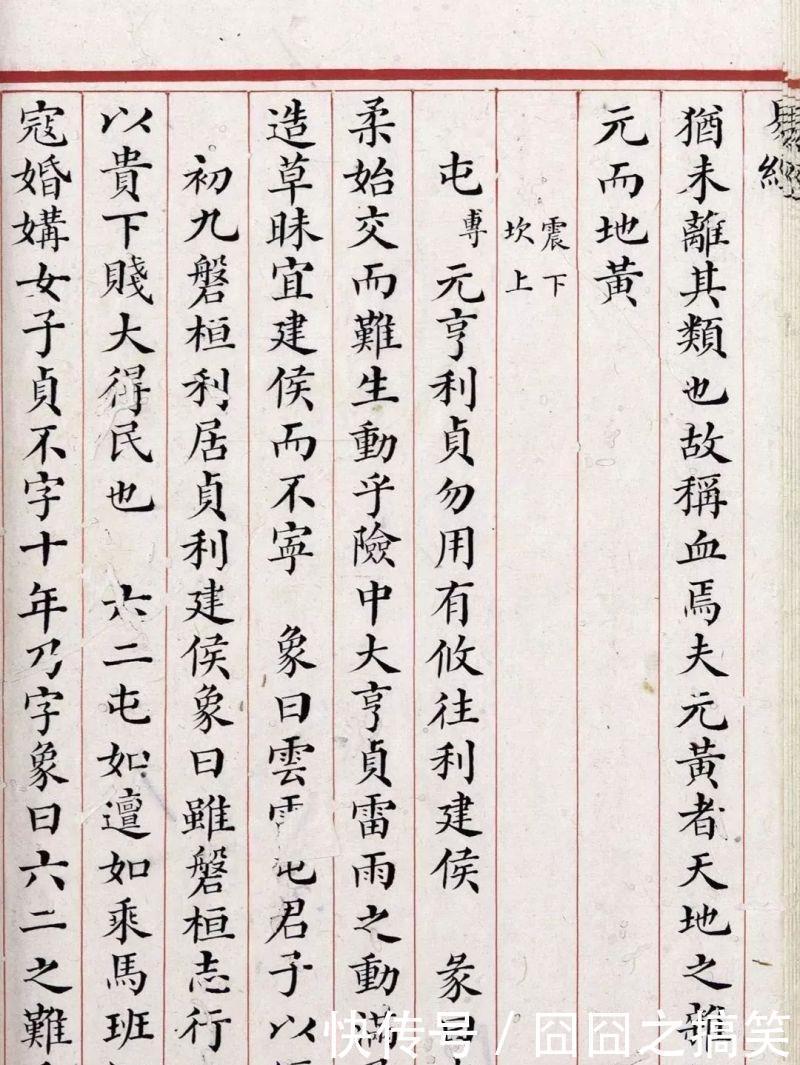 易經
猶未離其類也故稱血焉夫元黃者天地之雜
元而地黃
震下
坎上
屯專元亨利貞勿用有攸往利建侯 彖曰
柔始交而難生動乎險中大亨貞雷雨之動滿
造草昧宜建侯而不寧 象曰雲屯君子以
初九磐桓利居貞利建侯象曰雖磐桓志行
以貴下賤大得民也 六二屯如邅如乘馬班
寇婚媾女子貞不字十年乃字象曰六二之難
快传号/囧囧之搞笑